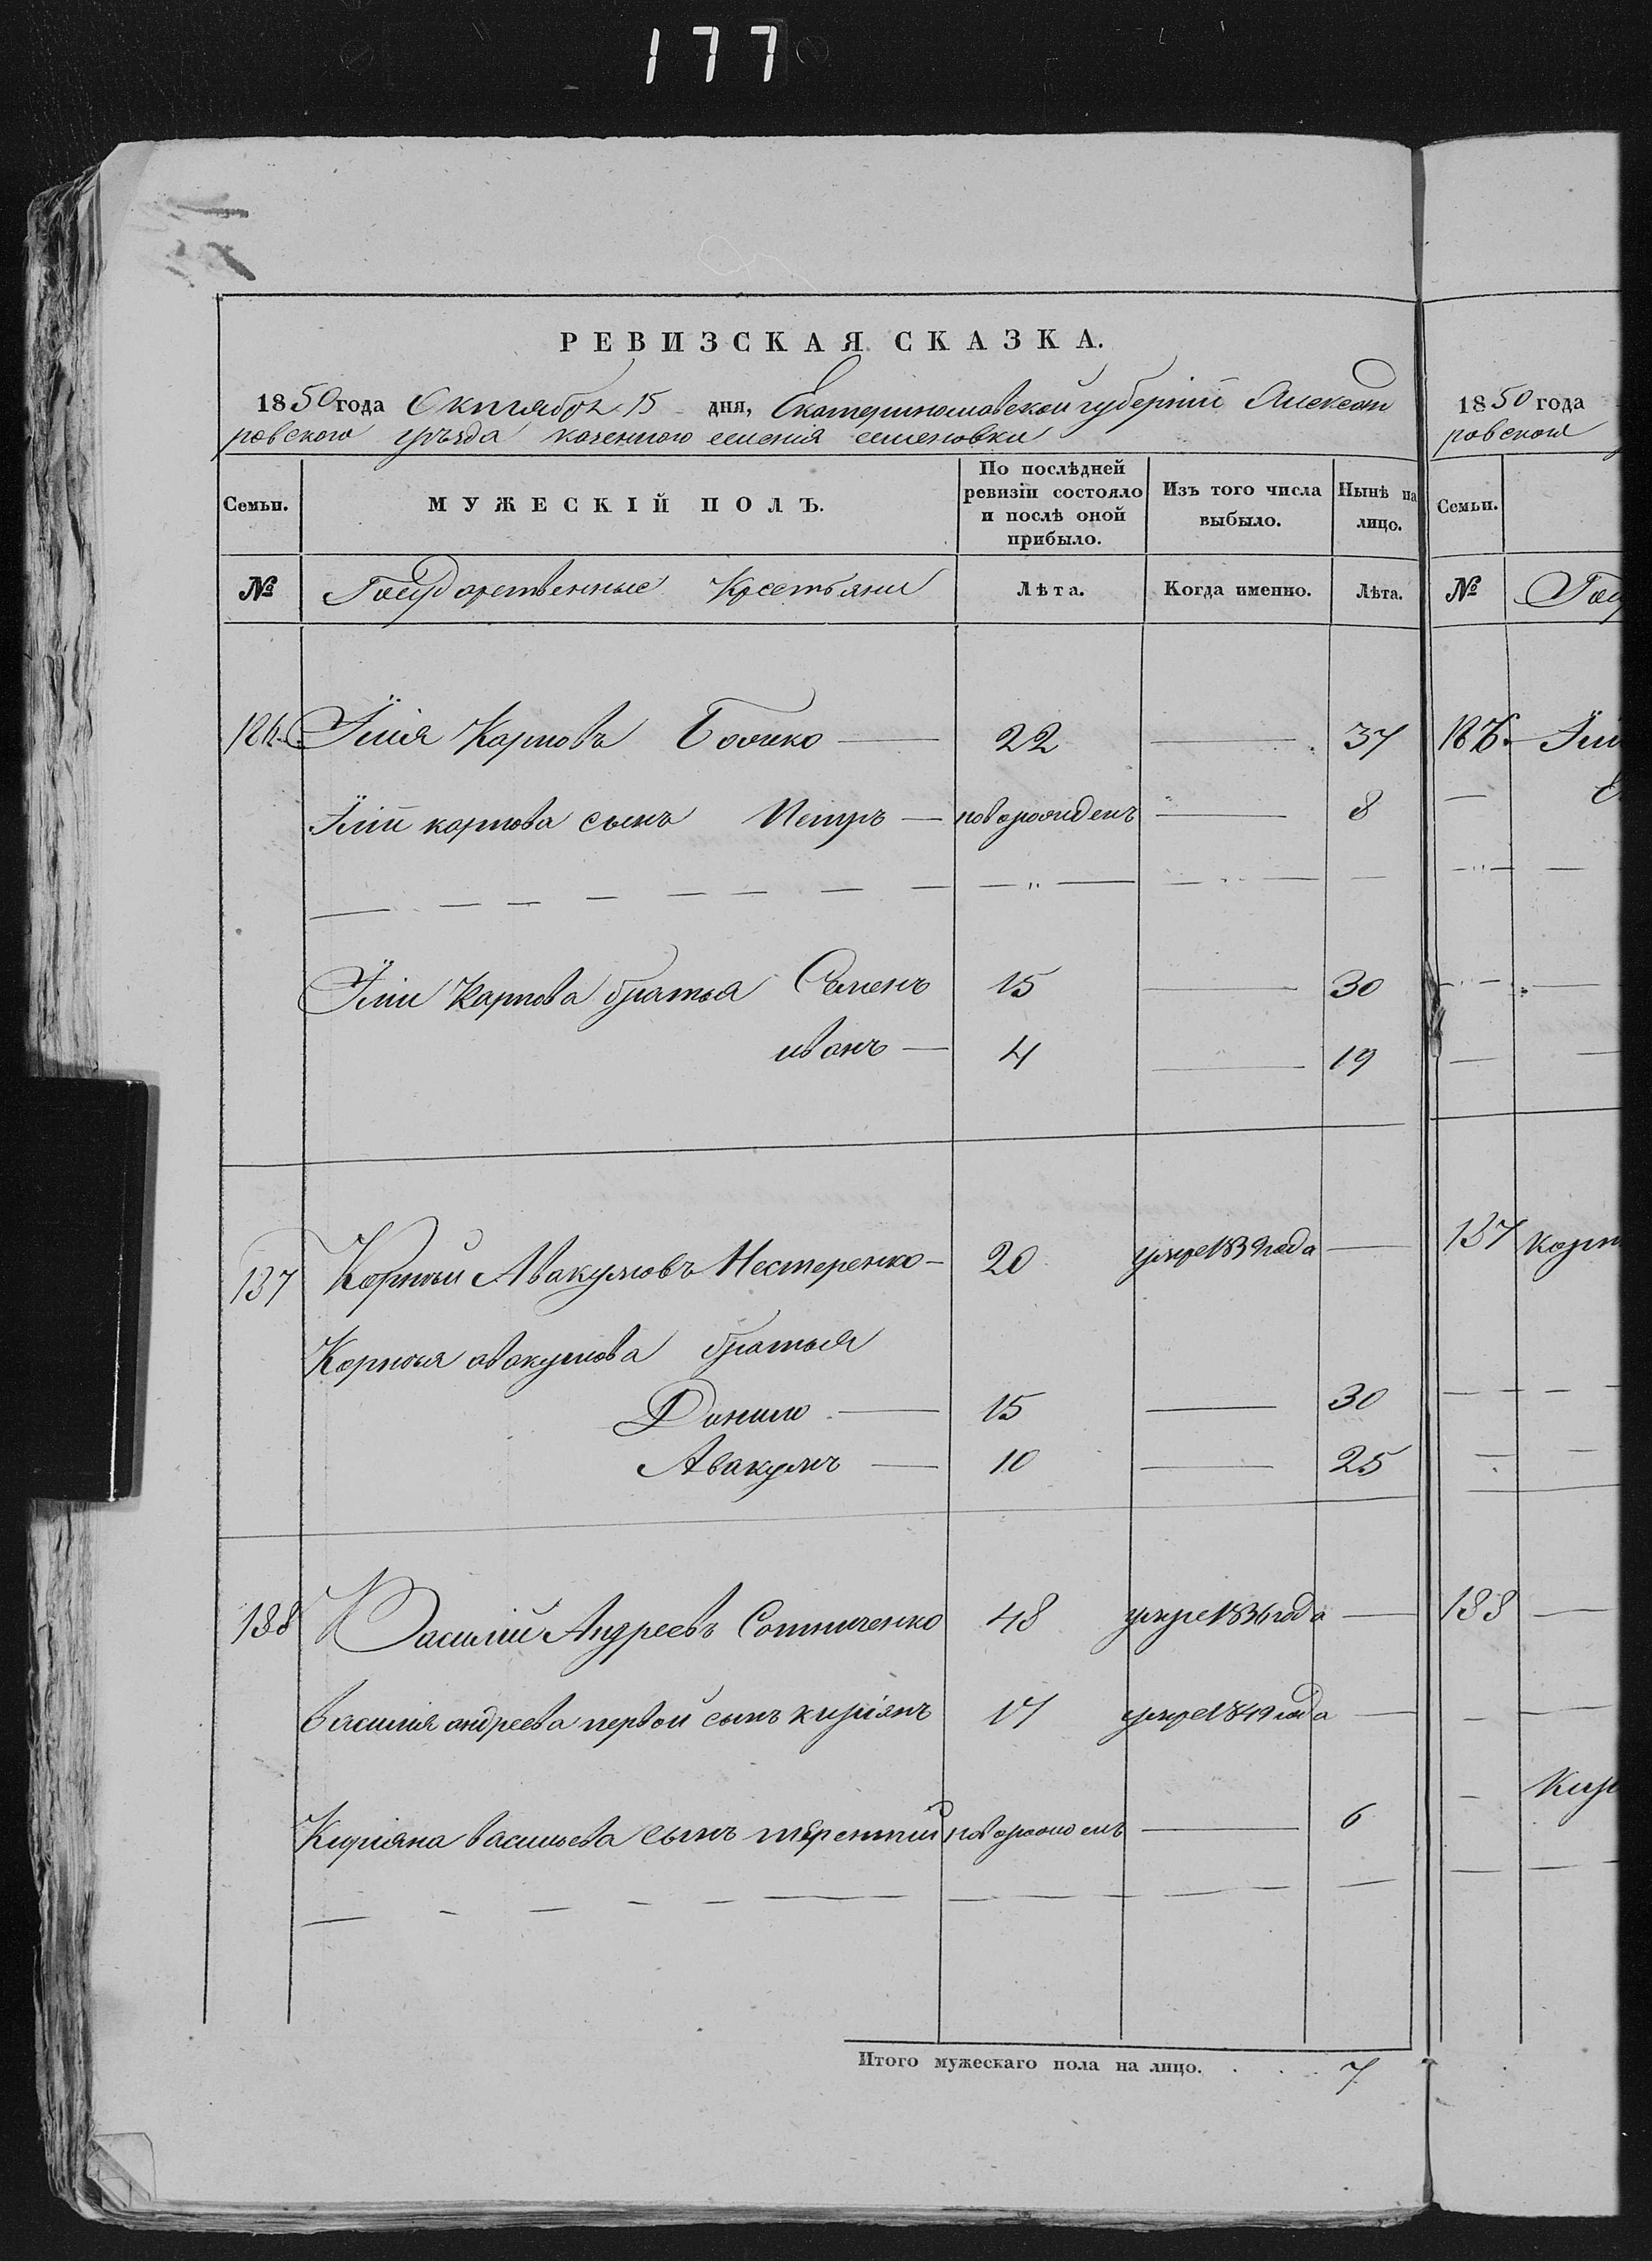 177
РЕВИЗСКАЯ СКАЗКА.
1850 года Октября 15 дня, Екатеринославской губернiи Александ
ровского уѣзда казенного селенiя семеновки
Семьи. МУЖЕСКІЙ ПОЛЪ. По послѣдней ревизіи состояло и послѣ оной прибыло. Изъ того числа выбыло. Нынѣ на лицо.
№ Государственные Крестьяни Лѣта. Когда именно. Лѣта.
186. Iлiя Карповъ Бойко 22 — 37
Iлiи карпова сынъ Петръ — новорожденъ — 8
Iлiи Карпова братья Семенъ 15 — 30
иванъ — 4 — 19
187 Корнѣй Авакумовъ Нестеренко — 20 умре 1839 года —
Корнѣя авакумова братья
Данило — 15 — 30
Авакумъ — 10 — 25
188 Василiй Андреевъ Сотниченко 48 умре 1836 года —
василия андреева первой сынъ кирiянъ 17 умре 1849 года —
Кирiяна васильева сынъ терентий новорожденъ — 6
Итого мужескаго пола на лицо. . . . 7
1850 года
ровского
Семьи.
№ Гос
186. Iли
187 корн
188 —
Кир